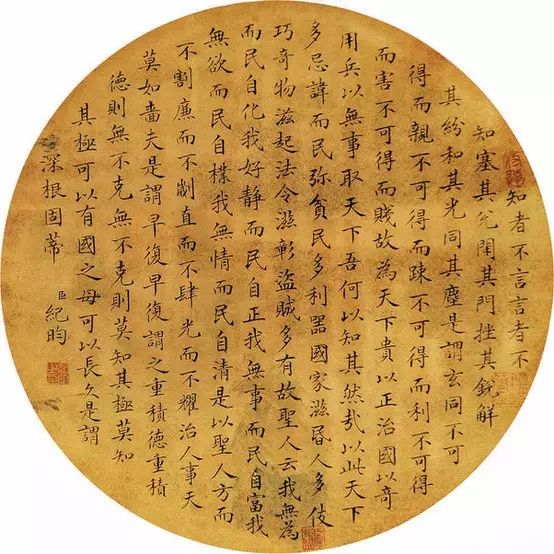 知者不言言者不
知塞其兊閇其門挫其銳解
其紛和其光同其塵是謂玄同不可
得而親不可得而踈不可得而利不可得
而害不可得而賤故為天下貴以正治國以奇
用兵以無事取天下吾何以知其然㢤以此天下
多忌諱而民弥貧民多利噐國家滋昬人多伎
巧奇物滋起法令滋彰盜賊多有故聖人云我無為
而民自化我好靜而民自正我無事而民自富我
無欲而民自樸我無情而民自清是以聖人方而
不割廉而不劌直而不肆光而不耀治人事天
莫如嗇夫是謂早復早復謂之重積德重積
德則無不克無不克則莫知其極莫知
其極可以有國之母可以長久是謂
深根固蒂 臣紀昀